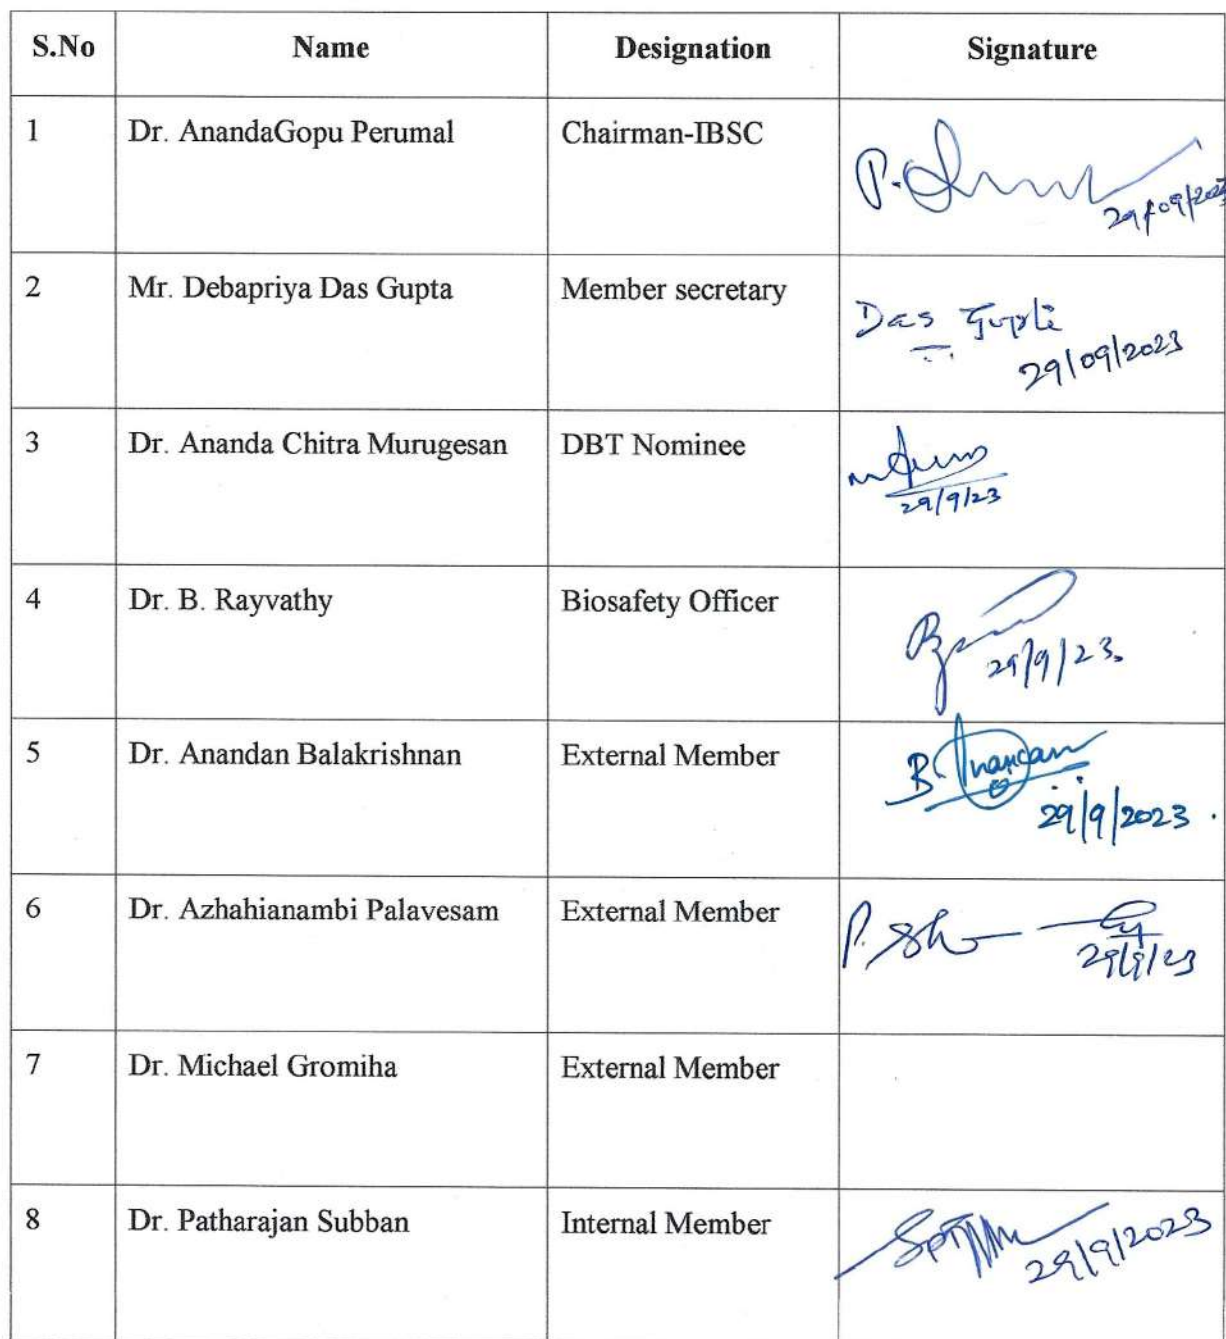 S.No Name Designation Signature
1 Dr. AnandaGopu Perumal Chairman-IBSC P.
29/09/2023
2 Mr. Debapriya Das Gupta Member secretary Das Gupta
29/09/2023
3 Dr. Ananda Chitra Murugesan DBT Nominee
29/9/23
4 Dr. B. Rayvathy Biosafety Officer
29/9/23.
5 Dr. Anandan Balakrishnan External Member B. Anandan
29/9/2023.
6 Dr. Azhahianambi Palavesam External Member P.
29/9/23
7 Dr. Michael Gromiha External Member
8 Dr. Patharajan Subban Internal Member
29/9/2023